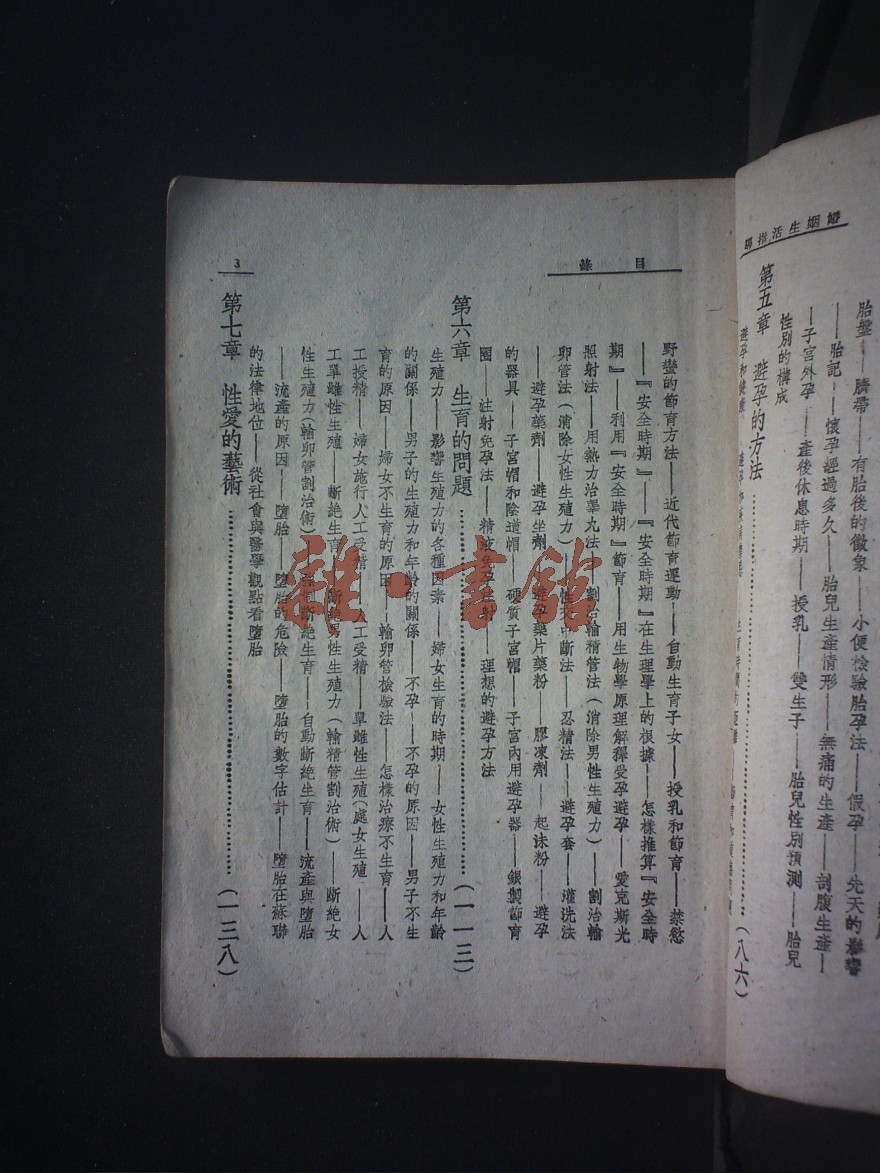 婚姻生活指導
胎盤——臍帶——有胎後的徵象——小便檢驗胎孕法——假孕——先天的影響
——胎記——懷孕經過多久——胎兒生產情形——無痛的生產——剖腹生產—
—子宮外孕——產後休息時期——授乳——雙生子——胎兒性別預測——胎兒
性別的構成
第五章 避孕的方法…………(八六)
目錄
3
野蠻的節育方法——近代節育運動——自動生育子女——授乳和節育——禁慾
——『安全時期』——『安全時期』在生理學上的根據——怎樣推算『安全時
期』——利用『安全時期』節育——用生物學原理解釋受孕避孕——愛克斯光
照射法——用熱力治睾丸法——割治輸精管法(消除男性生殖力)——割治輸
卵管法(消除女性生殖力)——性交中斷法——忍精法——避孕套——灌洗法
——避孕藥劑——避孕坐劑——避孕藥片藥粉——膠凍劑——起沫粉——避孕
的器具——子宮帽和陰道帽——硬質子宮帽——子宮內用避孕器——銀製節育
圈——注射免孕法——精液免孕注射——理想的避孕方法
第六章 生育的問題…………(一一三)
生殖力——影響生殖力的各種因素——婦女生育的時期——女性生殖力和年齡
的關係——男子的生殖力和年齡的關係——不孕——不孕的原因——男子不生
育的原因——婦女不生育的原因——輸卵管檢驗法——怎樣治療不生育——人
工授精——婦女施行人工受精——人工受精——單雌性生殖(處女生殖)——人
工單雌性生殖——斷絕生育——斷絕男性生殖力(輸精管割治術)——斷絕女
性生殖力(輸卵管割治術)——強制斷絕生育——自動斷絕生育——流產與墮胎
——流產的原因——墮胎——墮胎的危險——墮胎的數字估計——墮胎在蘇聯
的法律地位——從社會與醫學觀點看墮胎
第七章 性愛的藝術…………(一三八)
雜·書館